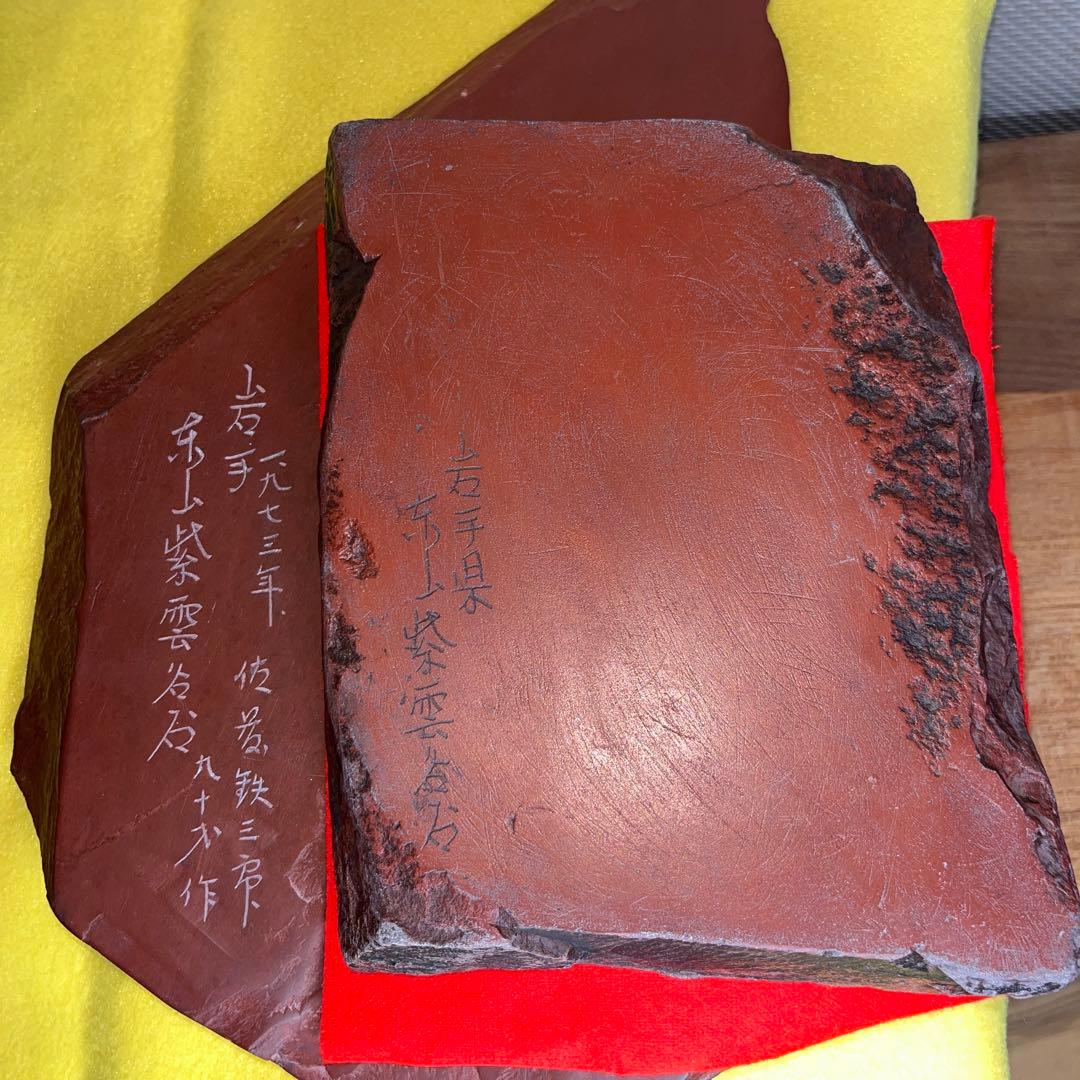 岩手県
東山紫雲谷石
岩手
東山紫雲谷石
一九七三年、
佐藤鉄三郎
九十才作